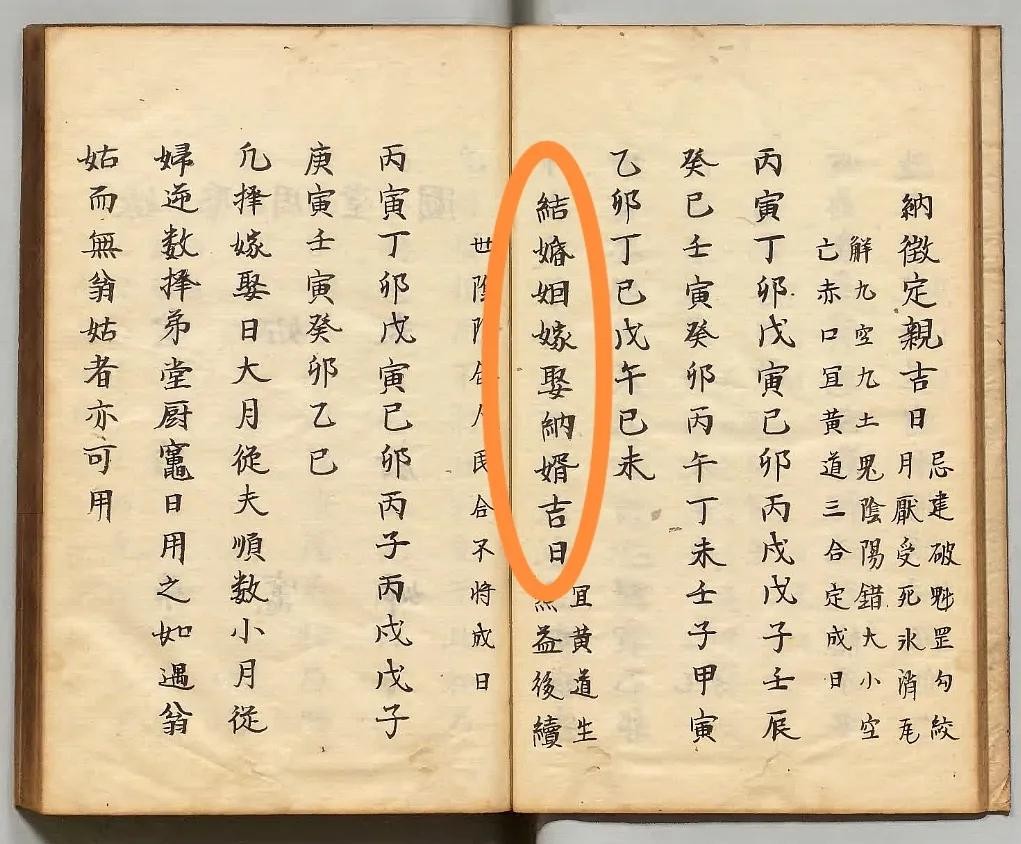 納徵定親吉日
忌建破魁罡勾絞
月厭受死氷消瓦
解九空九土鬼陰陽錯大小空
亡赤口冝黄道三合定成日
丙寅丁卯戊寅已卯丙戌戊子壬辰
癸巳壬寅癸卯丙午丁未壬子甲寅
乙卯丁巳戊午已未
結婚姻嫁娶納婿吉日
冝黄道生
益後續
世
民合不將成日
丙寅丁卯戊寅已卯丙子丙戌戊子
庚寅壬寅癸卯乙巳
凡擇嫁娶日大月從夫順数小月從
婦逆数擇苐堂厨竈日用之如遇翁
姑而無翁姑者亦可用